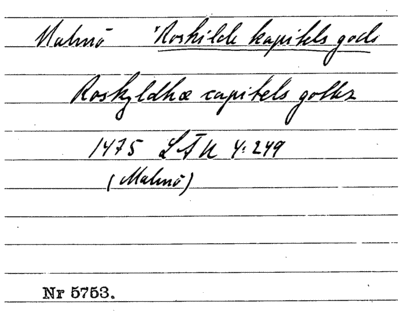 Malmö *Roskilde kapitels gods
Roskyldhæ capitels gotkz
1475 LÄU 4:249
(Malmö)
Nr 5753.